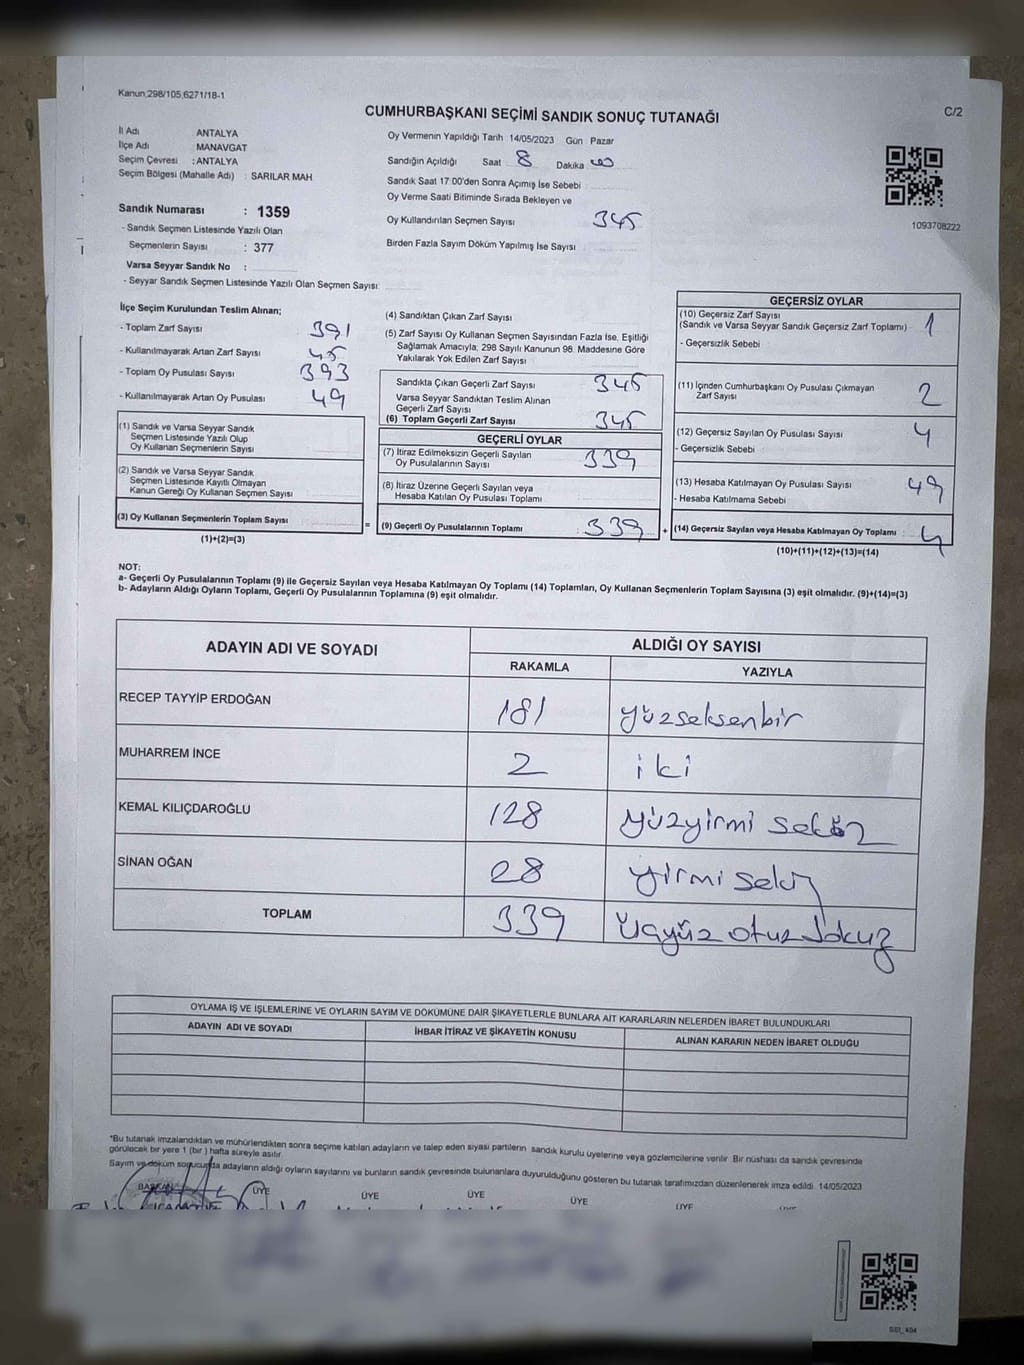 Kanun,298/105,6271/18-1
CUMHURBAŞKANI SEÇİMİ SANDIK SONUÇ TUTANAĞI
C/2
İl Adı ANTALYA
İlçe Adı MANAVGAT
Seçim Çevresi : ANTALYA
Seçim Bölgesi (Mahalle Adı) : SARILAR MAH
Sandık Numarası : 1359
- Sandık Seçmen Listesinde Yazılı Olan
Seçmenlerin Sayısı : 377
Varsa Seyyar Sandık No :
- Seyyar Sandık Seçmen Listesinde Yazılı Olan Seçmen Sayısı:
Oy Vermenin Yapıldığı Tarih 14/05/2023 Gün : Pazar
Sandığın Açıldığı Saat 8 Dakika
Sandık Saat 17:00'den Sonra Açımış İse Sebebi
Oy Verme Saati Bitiminde Sırada Bekleyen ve
Oy Kullandırılan Seçmen Sayısı 345
Birden Fazla Sayım Döküm Yapılmış İse Sayısı
1093708222
İlçe Seçim Kurulundan Teslim Alınan;
- Toplam Zarf Sayısı 391
- Kullanılmayarak Artan Zarf Sayısı 45
- Toplam Oy Pusulası Sayısı 393
- Kullanılmayarak Artan Oy Pusulası 49
(1) Sandık ve Varsa Seyyar Sandık
Seçmen Listesinde Yazılı Olup
Oy Kullanan Seçmenlerin Sayısı
(2) Sandık ve Varsa Seyyar Sandık
Seçmen Listesinde Kayıtlı Olmayan
Kanun Gereği Oy Kullanan Seçmen Sayısı
(3) Oy Kullanan Seçmenlerin Toplam Sayısı
(1)+(2)=(3)
=
(4) Sandıktan Çıkan Zarf Sayısı
(5) Zarf Sayısı Oy Kullanan Seçmen Sayısından Fazla İse, Eşitliği
Sağlamak Amacıyla, 298 Sayılı Kanunun 98. Maddesine Göre
Yakılarak Yok Edilen Zarf Sayısı
Sandıkta Çıkan Geçerli Zarf Sayısı 345
Varsa Seyyar Sandıktan Teslim Alınan
Geçerli Zarf Sayısı
(6) Toplam Geçerli Zarf Sayısı 345
GEÇERLİ OYLAR
(7) İtiraz Edilmeksizin Geçerli Sayılan
Oy Pusulalarının Sayısı 339
(8) İtiraz Üzerine Geçerli Sayılan veya
Hesaba Katılan Oy Pusulası Toplamı
(9) Geçerli Oy Pusulalarının Toplamı 339
+
GEÇERSİZ OYLAR
(10) Geçersiz Zarf Sayısı
(Sandık ve Varsa Seyyar Sandık Geçersiz Zarf Toplamı) 1
- Geçersizlik Sebebi
(11) İçinden Cumhurbaşkanı Oy Pusulası Çıkmayan
Zarf Sayısı 2
(12) Geçersiz Sayılan Oy Pusulası Sayısı 4
- Geçersizlik Sebebi
(13) Hesaba Katılmayan Oy Pusulası Sayısı 49
- Hesaba Katılmama Sebebi
(14) Geçersiz Sayılan veya Hesaba Katılmayan Oy Toplamı 4
(10)+(11)+(12)+(13)=(14)
NOT:
a- Geçerli Oy Pusulalarının Toplamı (9) ile Geçersiz Sayılan veya Hesaba Katılmayan Oy Toplamı (14) Toplamları, Oy Kullanan Seçmenlerin Toplam Sayısına (3) eşit olmalıdır. (9)+(14)=(3)
b- Adayların Aldığı Oyların Toplamı, Geçerli Oy Pusulalarının Toplamına (9) eşit olmalıdır.
ADAYIN ADI VE SOYADI
ALDIĞI OY SAYISI
RAKAMLA YAZIYLA
RECEP TAYYİP ERDOĞAN 181 yüzseksenbir
MUHARREM İNCE 2 iki
KEMAL KILIÇDAROĞLU 128 yüzyirmi sekiz
SİNAN OĞAN 28 yirmi sekiz
TOPLAM 339 üçyüz otuz dokuz
OYLAMA İŞ VE İŞLEMLERİNE VE OYLARIN SAYIM VE DÖKÜMÜNE DAİR ŞİKAYETLERLE BUNLARA AİT KARARLARIN NELERDEN İBARET BULUNDUKLARI
ADAYIN ADI VE SOYADI İHBAR İTİRAZ VE ŞİKAYETİN KONUSU ALINAN KARARIN NEDEN İBARET OLDUĞU
*Bu tutanak imzalandıktan ve mühürlendikten sonra seçime katılan adayların ve talep eden siyasi partilerin sandık kurulu üyelerine veya gözlemcilerine verilir. Bir nüshası da sandık çevresinde
görülecek bir yere 1 (bir ) hafta süreyle asılır.
Sayım ve döküm sonucunda adayların aldığı oyların sayılarını ve bunların sandık çevresinde bulunanlara duyurulduğunu gösteren bu tutanak tarafımızdan düzenlenerek imza edildi. 14/05/2023
BAŞKAN ÜYE ÜYE ÜYE ÜYE ÜYE